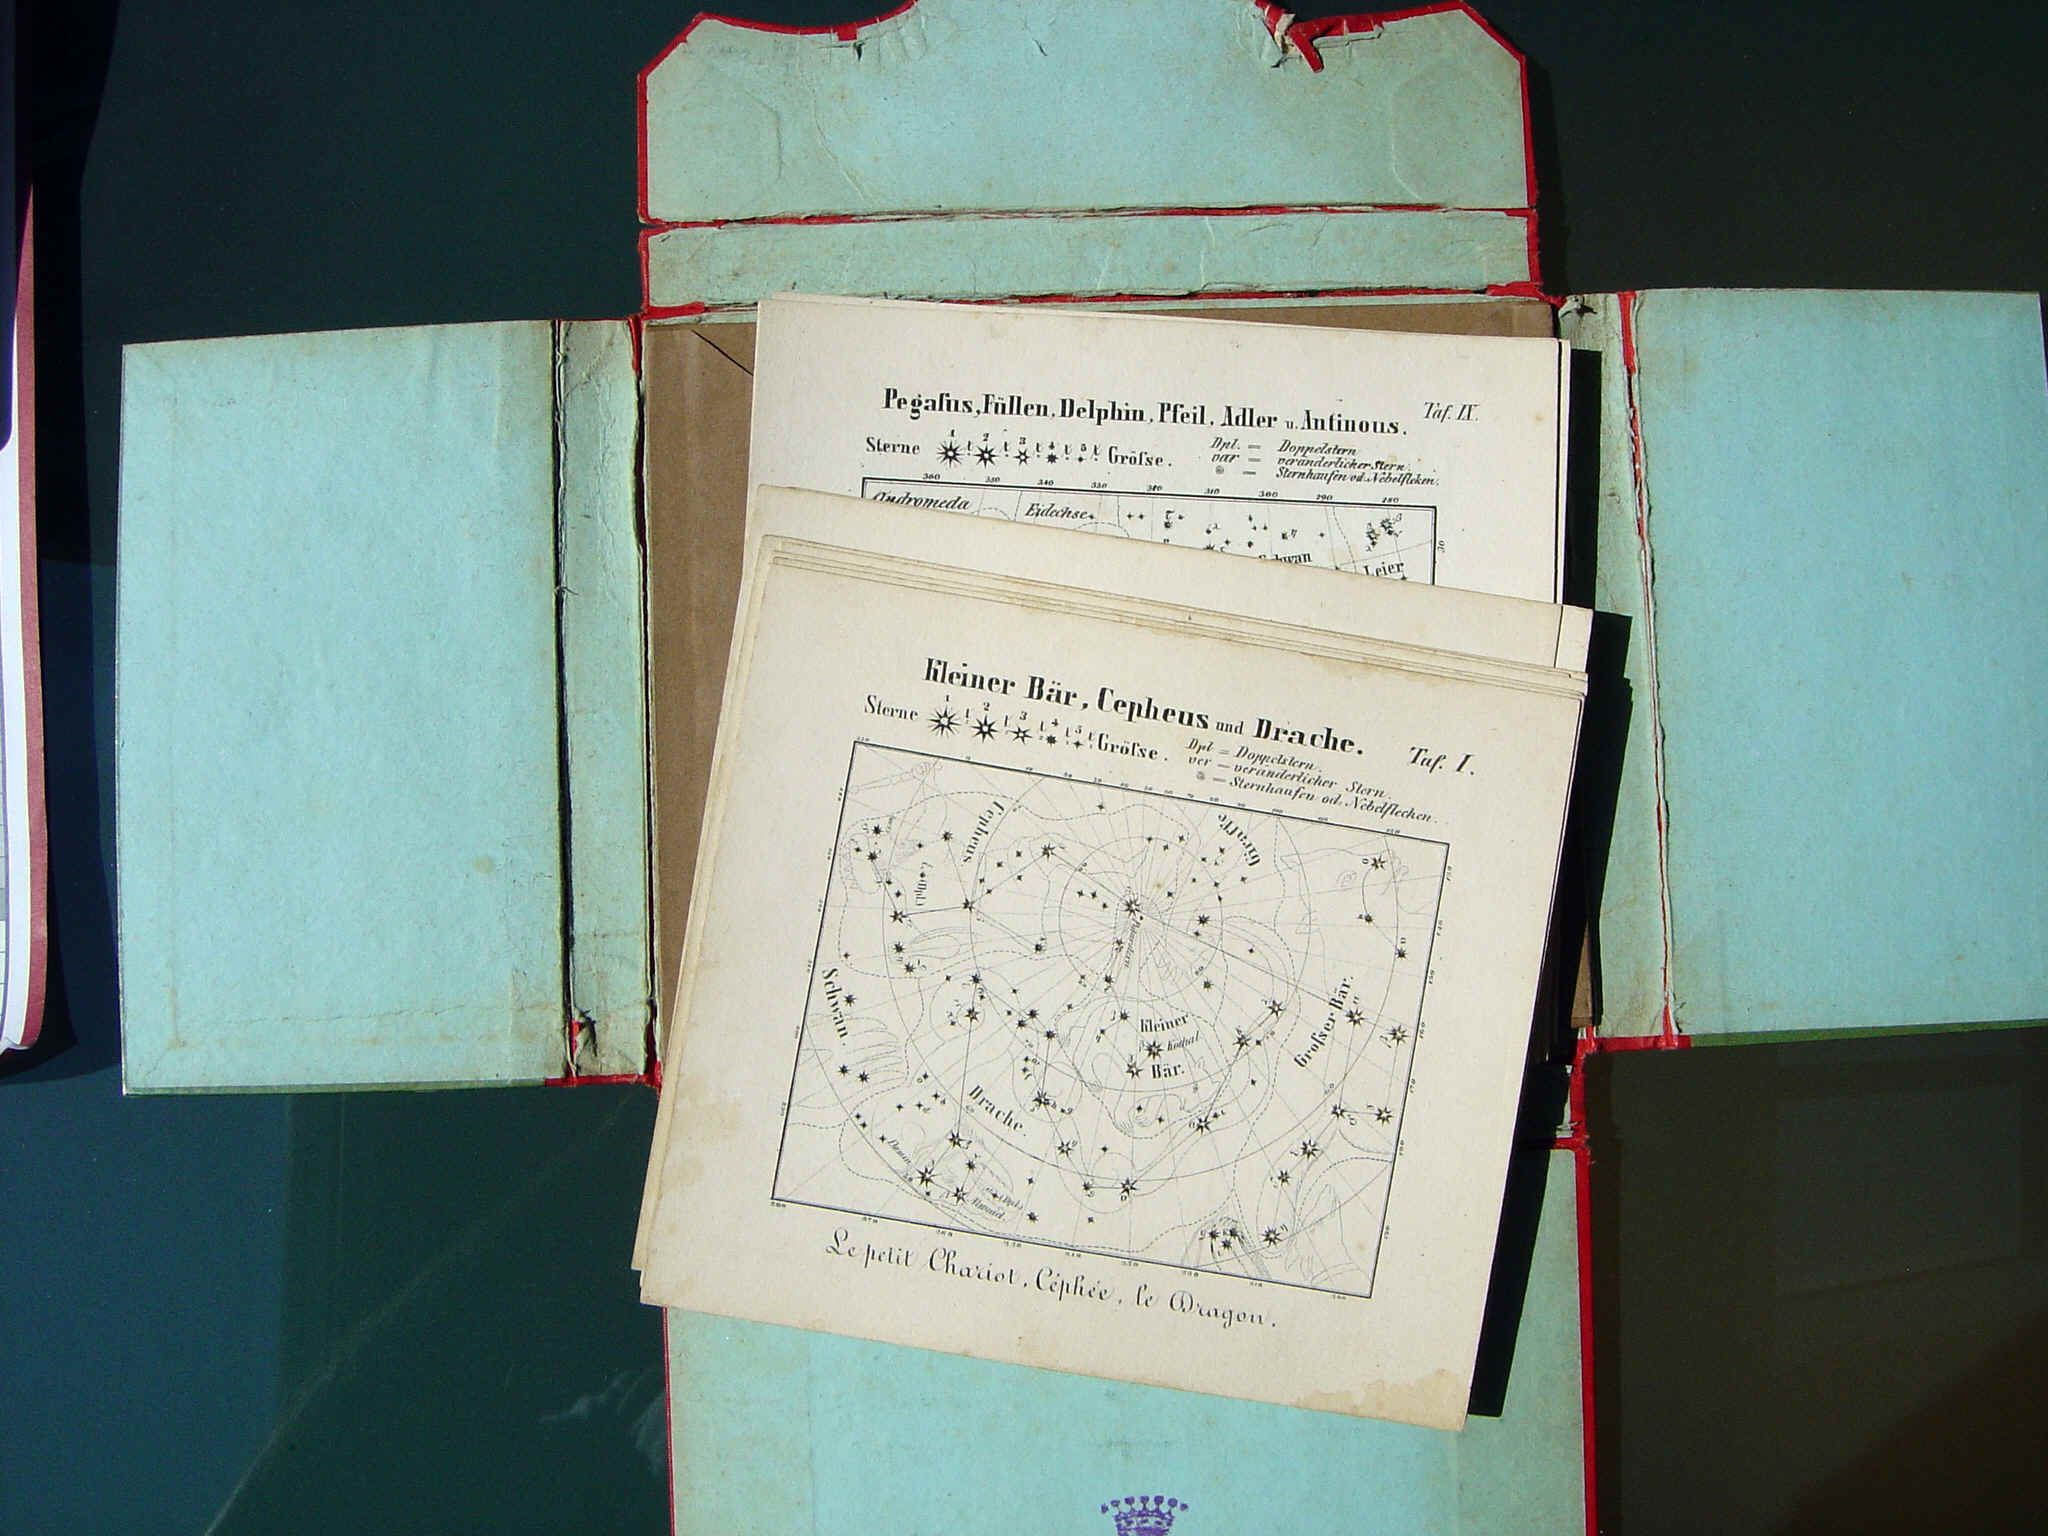 Pegaſus, Füllen, Delphin, Pfeil, Adler u. Antinous.
Taf. IX.
Sterne 1 2 3 4 5 Gröſse.
Dpl. = Doppelstern
var = veränderlicher Stern
= Sternhaufen od. Nebelflcken.
360 350 340 330 320 310 300 290 280
Andromeda Eidechse
Leier
30
Kleiner Bär, Cepheus und Drache.
Taf. I.
Sterne 1 2 3 4 5 Gröſse.
Dpl = Doppelstern.
ver = veränderlicher Stern.
= Sternhaufen od. Nebelflecken.
Cepheus
Giraffe
Schwan.
Polarstern
Groſser Bär.
Kleiner
Kochal
Bär.
Drache.
Le petit Chariot, Céphée, le Dragon.